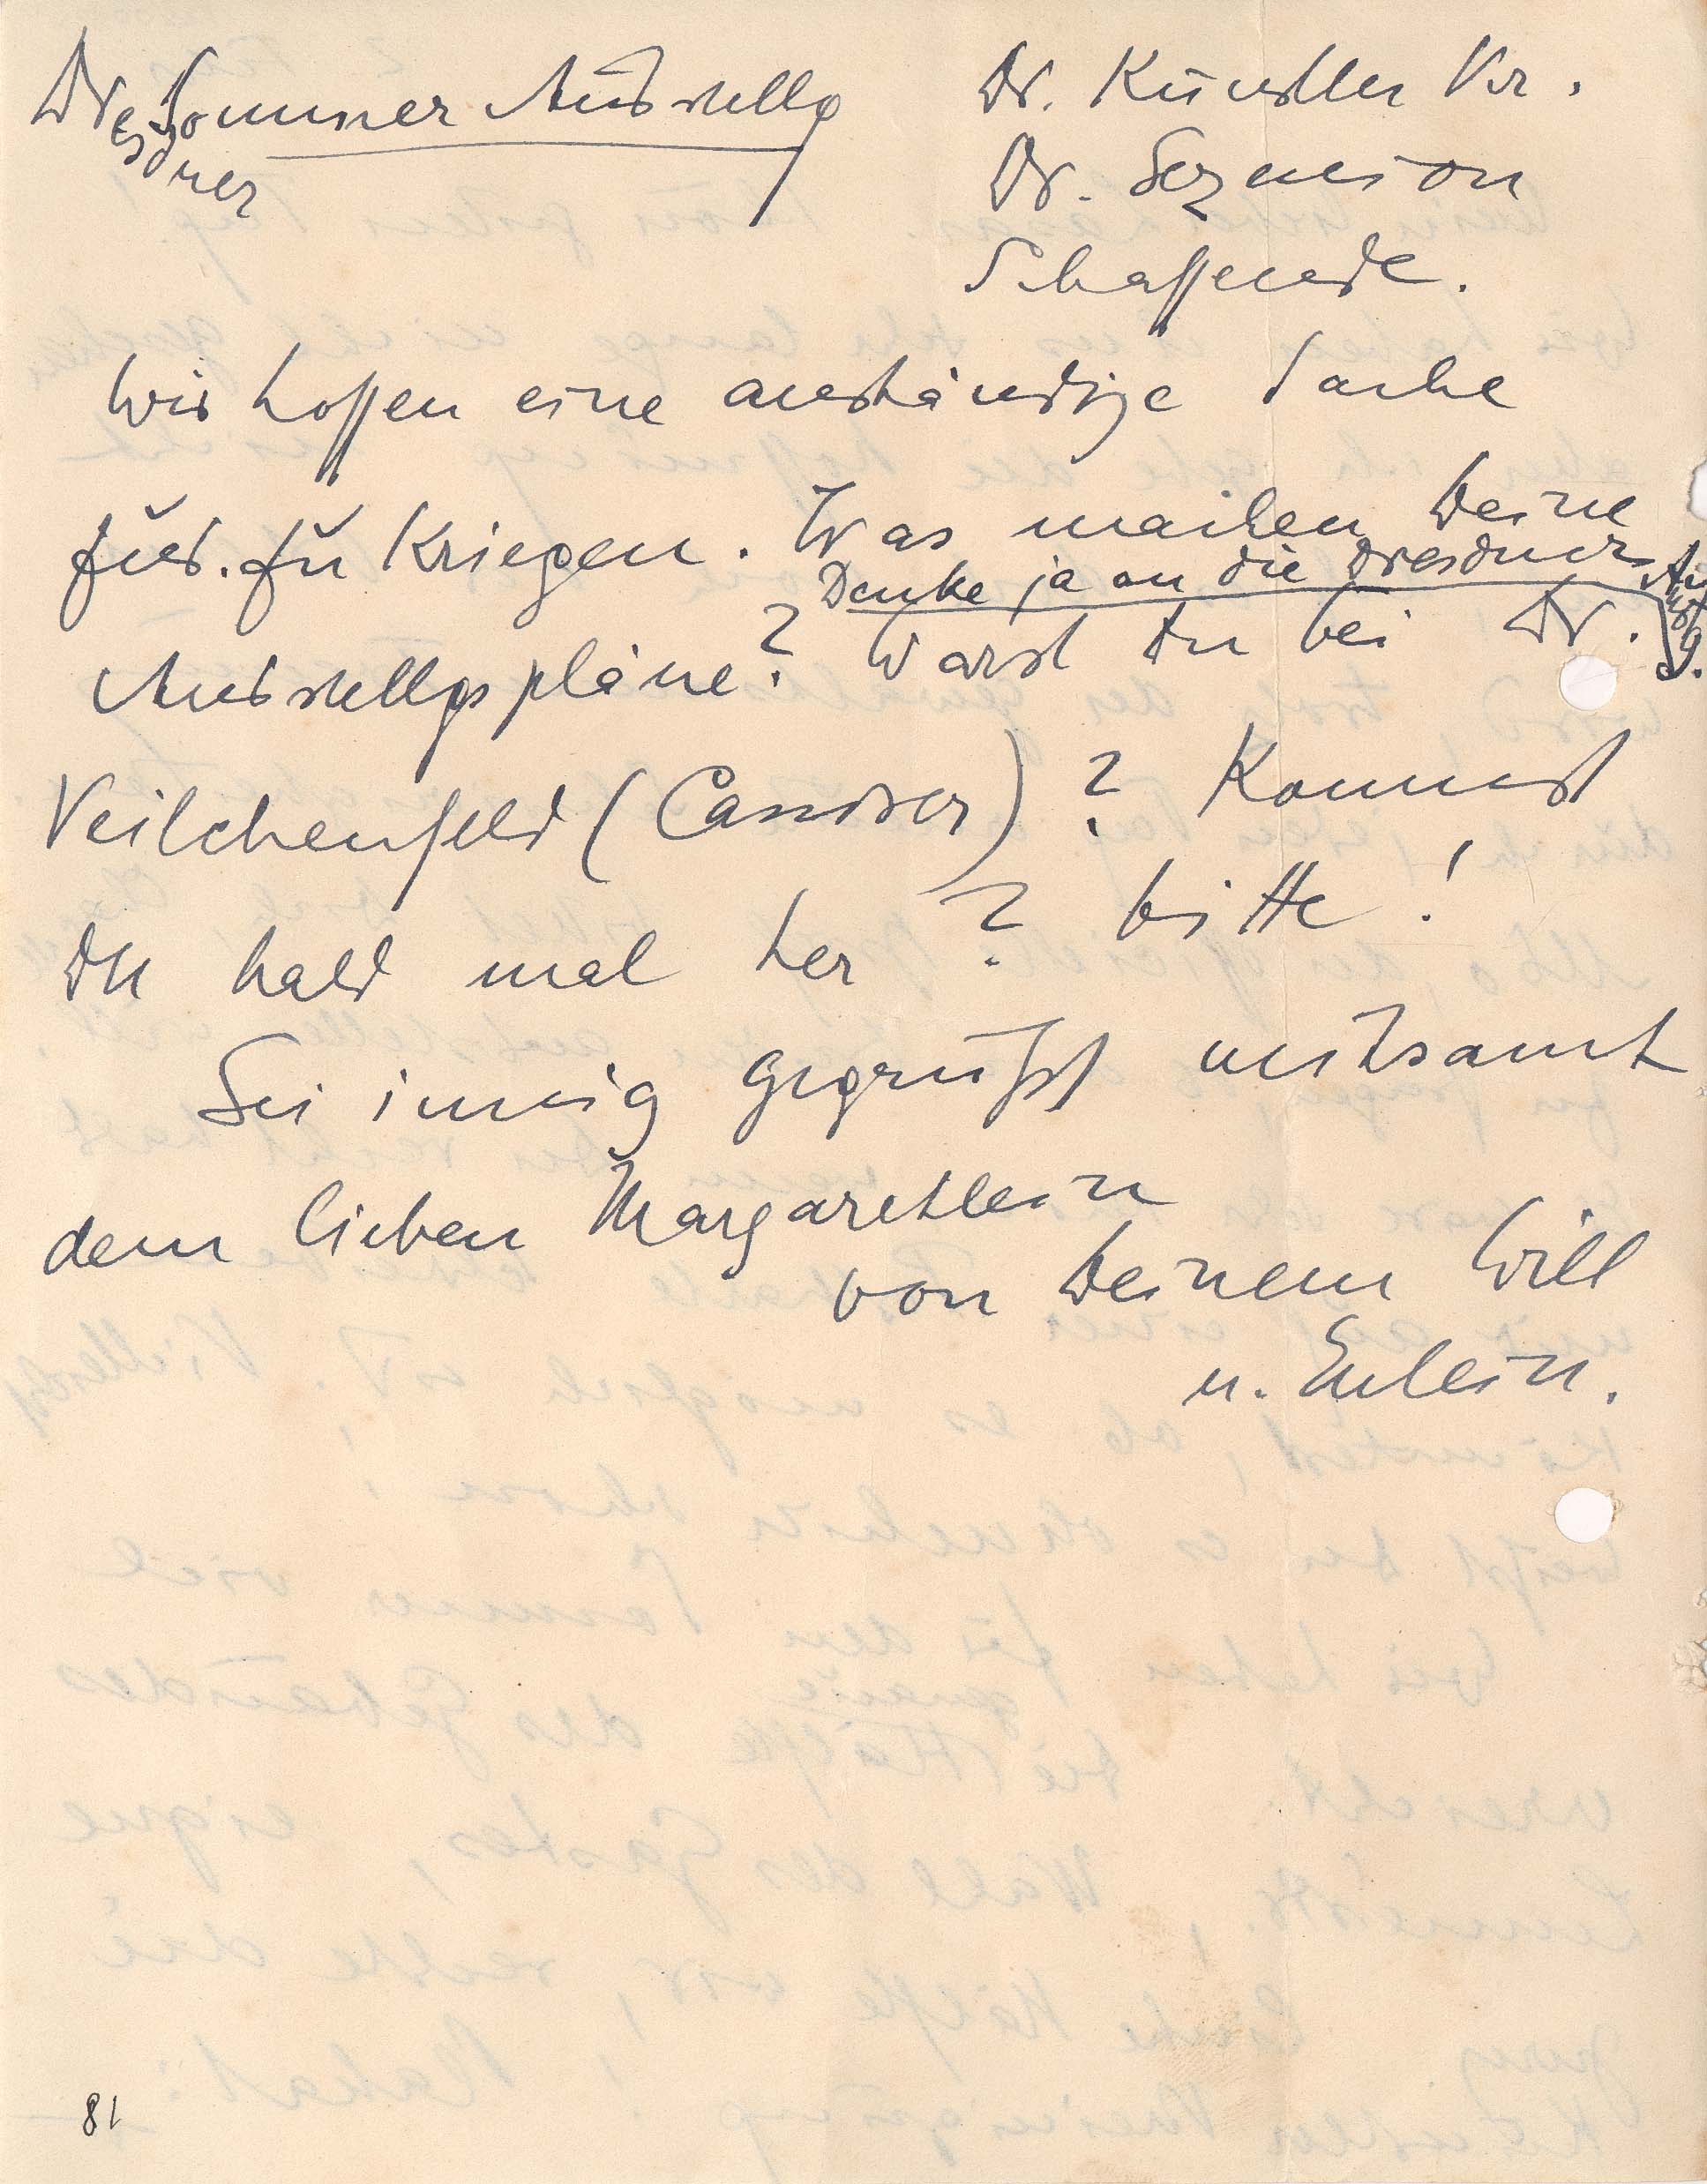 Dresdner Sommer Ausstellg
Dr. Künstler Ver.
Dr. Sezession
Schaffende.
Wir hoffen eine anständige Sache
zus. zu kriegen. Was machen Deine
Denke ja an die Dresdner Ausstlg.
Ausstellgspläne? Warst Du bei Dr.
Veilchenfeld (Cassirer)? Kommst
Du bald mal her? bitte!
Sei innig gegrüßt mitsamt
dem lieben Margaretlein
von Deinem Will
u. Eulein.
81